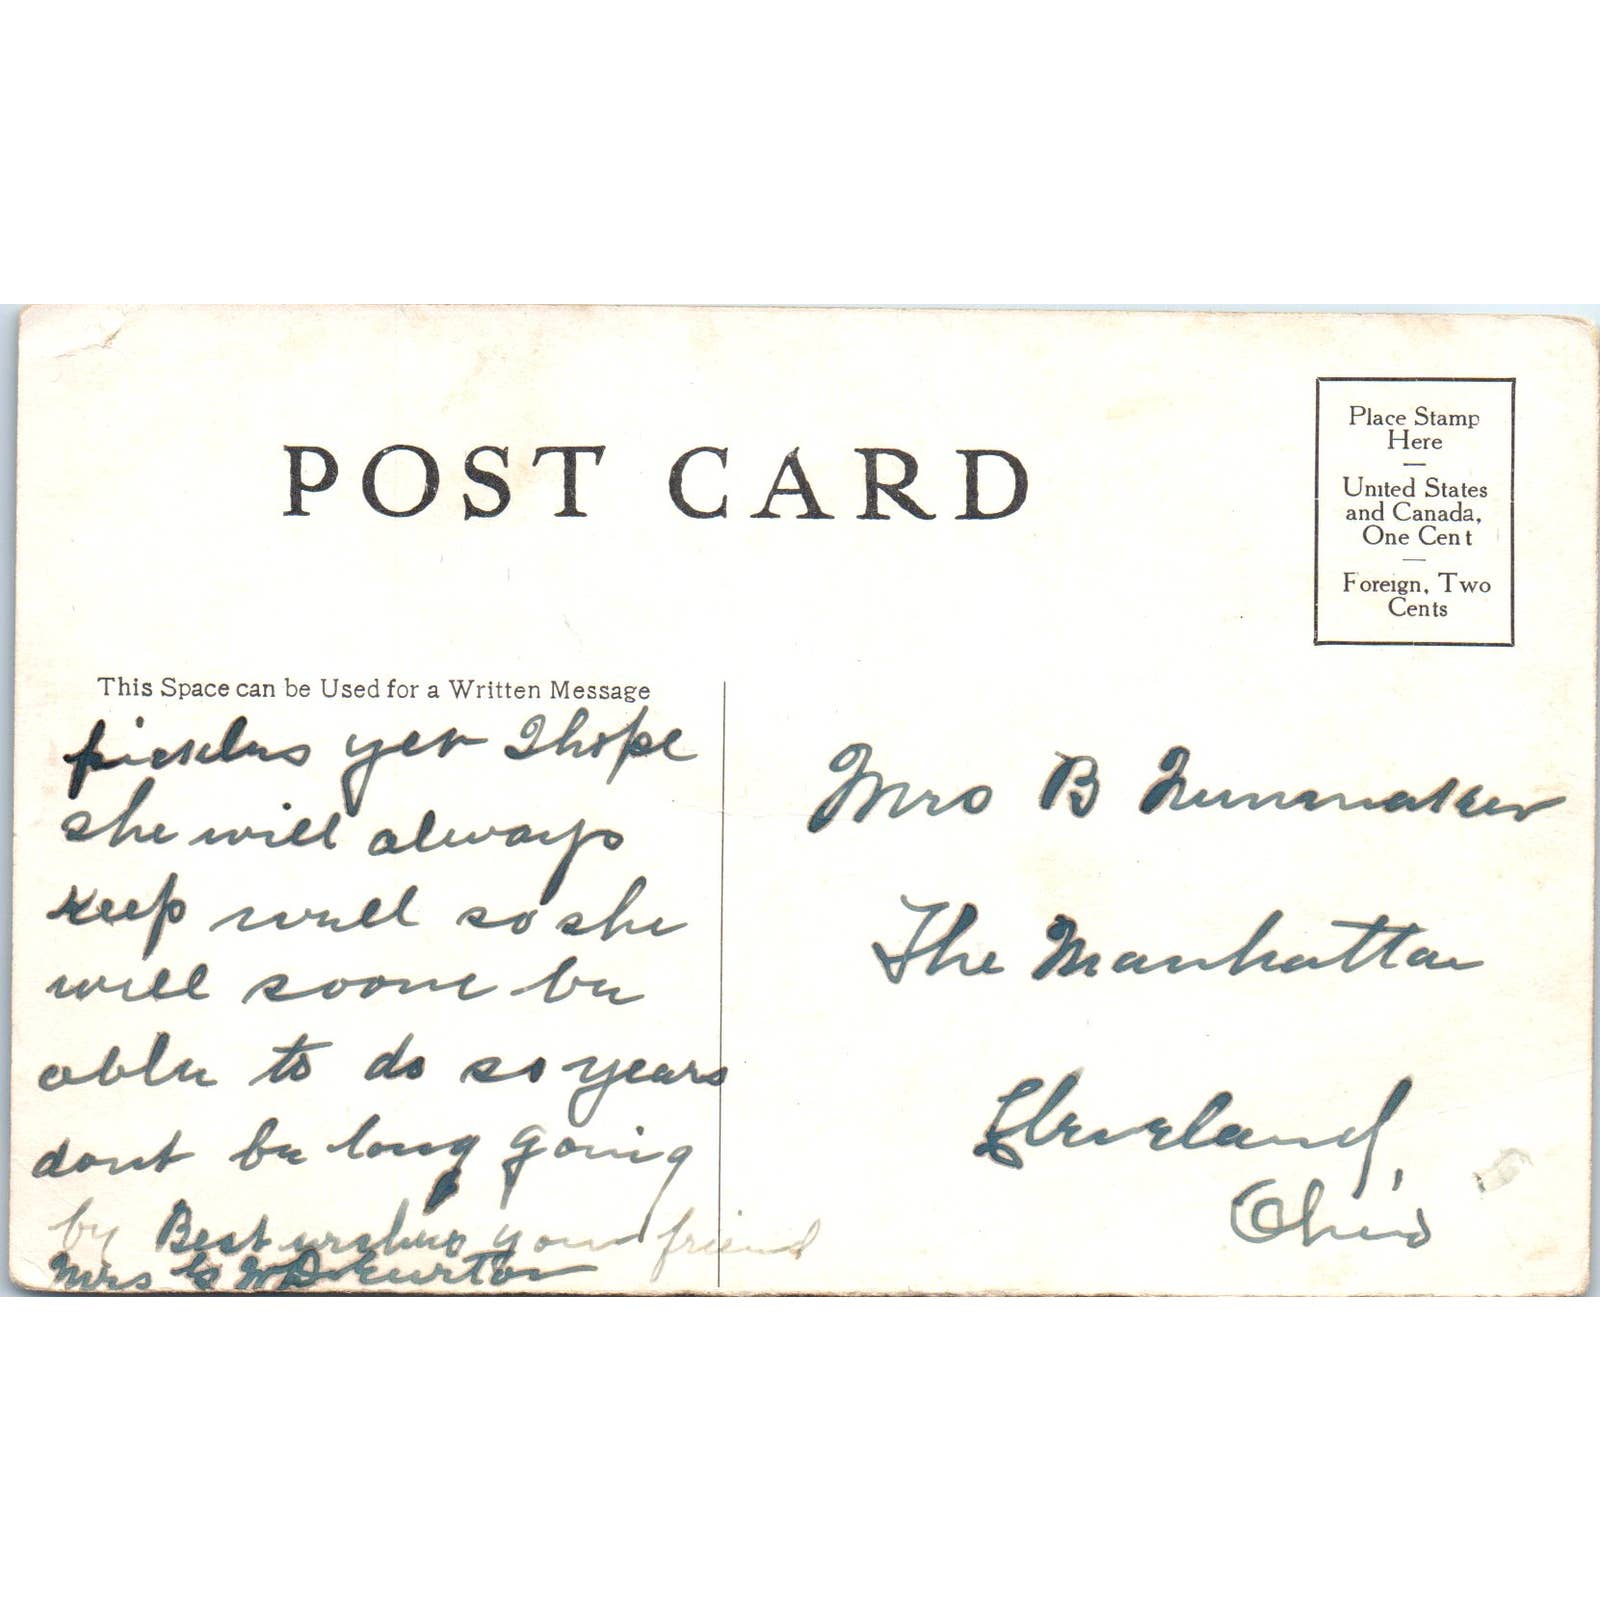 POST CARD
Place Stamp
Here
United States
and Canada,
One Cent
Foreign, Two
Cents
This Space can be Used for a Written Message
pickles yer I hope
she will always
keep well so she
will soone be
able to do so years
dont be long going
by Best wishes your friend
Mrs G W
Mrs B Nunamaker
The Manhattan
Cleveland,
Ohio